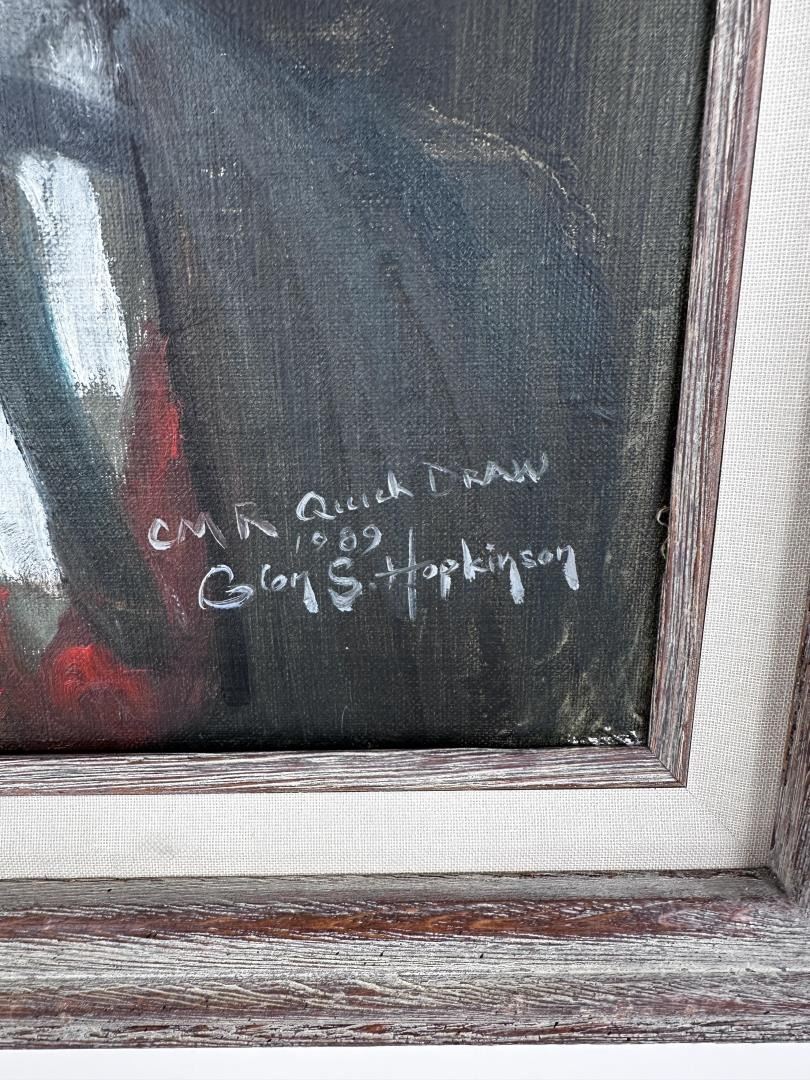 CMR Quick DRAW
1989
Glen S. Hopkinson